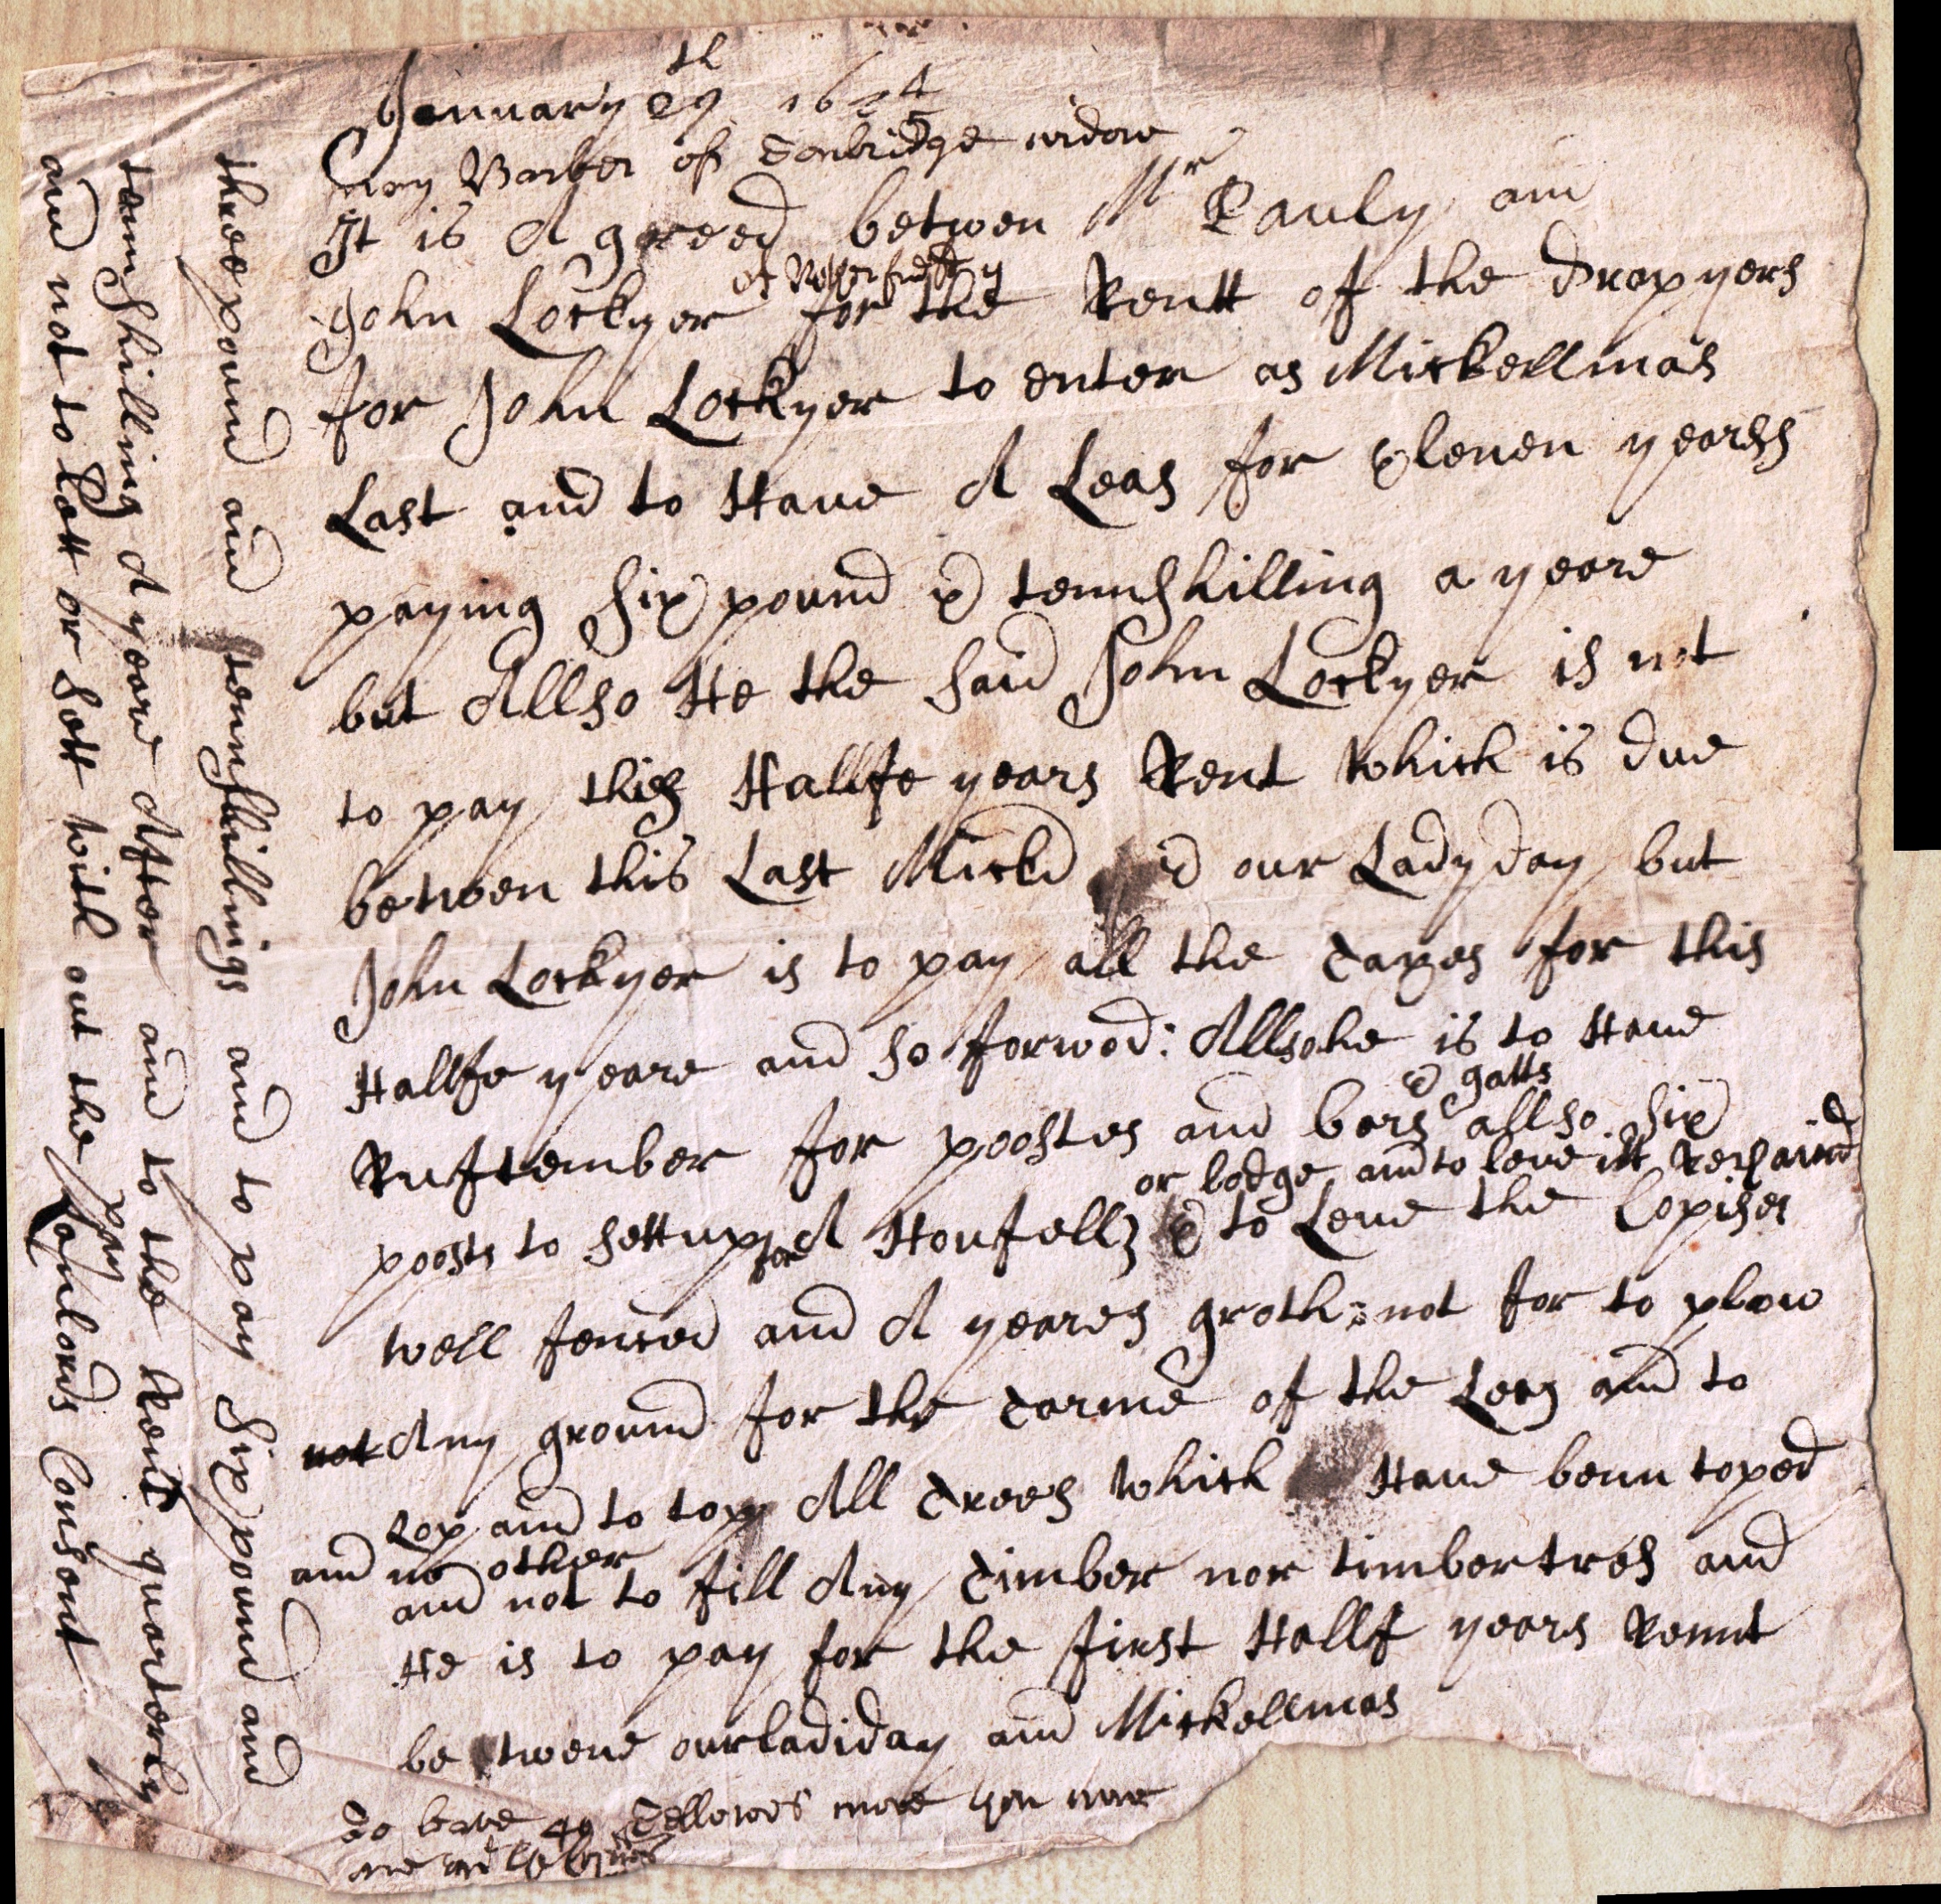 January 29th 16
mary Barber of Tonbridge widow
It is A greed betwen Mr Pauly and
John Lockyer for the Rentt of the Drapyers
for John Lockyer to enter as Mickellmas
Last and to Have A Leas for Eleven years
paying six pound & tennshilling a yeare
but Allso He the said John Lockyer is not
to pay this Hallfe years Rent which is due
betwen this Last Mickl & our Ladyday but
John Lockyer is to pay all the Taxes for this
Hallfe yeare and so forwod: Allsohe is to Have
& gatts
Ruftember for poostes and bars allso six
or lodge and to leve itt Repaired
poosts to settup for A Houfell & to Leve the Copises
well fenced and A yeares groth: not for to plow
not Any ground for the Tarme of the Leas and to
Lop and to top All Trees which Have benn toped
and no other
and not to fill Any Timber nor timbertres and
He is to pay for the first Hallf years Rennt
be twene ourladiday and Mickellmas
To have 40 Tellowes more
three pound and tennshillings and to pay six pound and
tennshilling A yeare After and to the Rent quarterly
pay
and not to Lett or Sett with out the Lanlords Consent